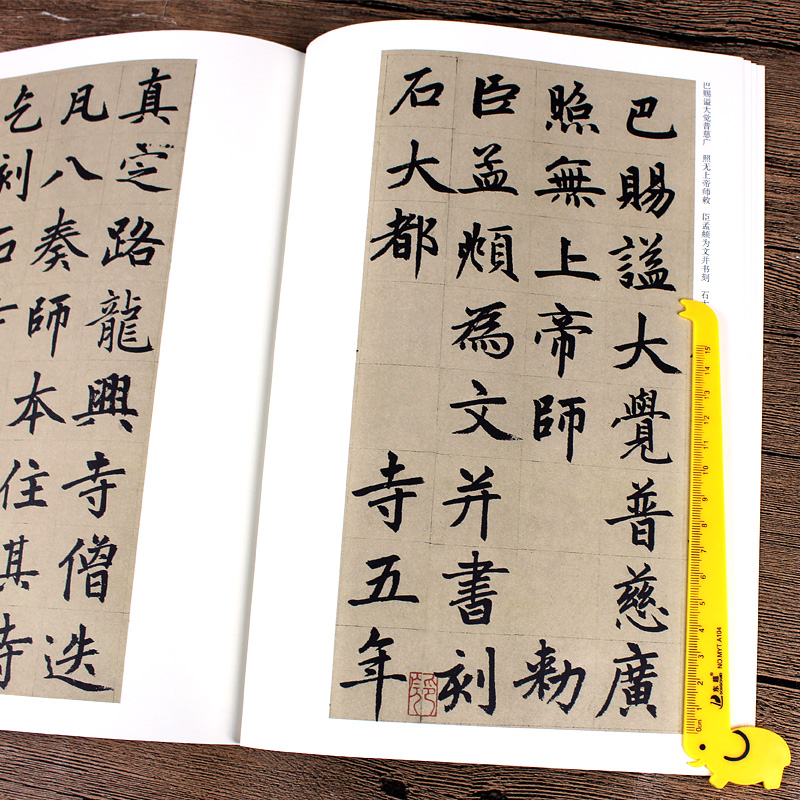 巴賜謚大覺普慈廣
照無上帝師 敕
臣孟頫為文并書刻
石大都 寺五年
真定路龍興寺僧迭
凡八奏師本住其寺
乞刻石
巴赐谥大觉普慈广 照无上帝师敕 臣孟頫为文并书刻 石大
15 14 13 12 11 10 9 8 7 6 5 4 3 2 1 0cm
NO.MYT A104